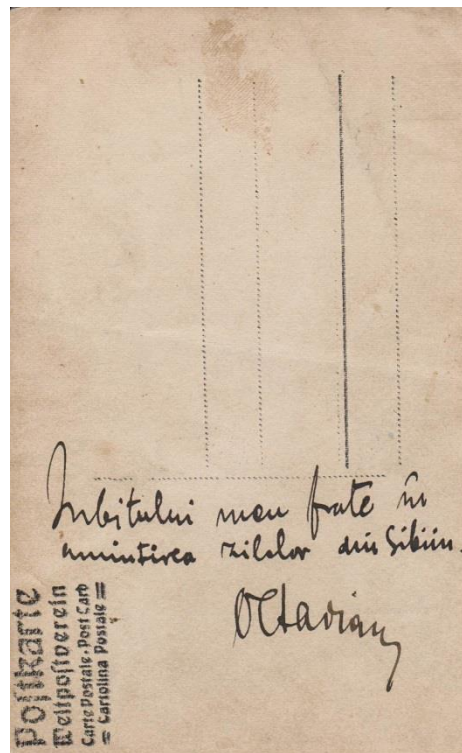 Iubitului meu frate în
amintirea zilelor din Sibiiu.
Octavian
Postkarte
Weltpostverein
Carte Postale. Post Card
= Cartolina Postale =